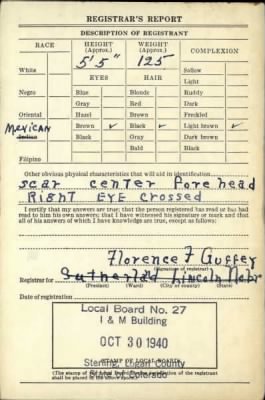 REGISTRAR'S REPORT
DESCRIPTION OF REGISTRANT
RACE HEIGHT (Approx.) WEIGHT (Approx.) COMPLEXION
5'5" 125
White Sallow
EYES HAIR Light
Negro Blue Blonde Ruddy
Gray Red Dark
Oriental Hazel Brown Freckled
Mexican Brown ✓ Black ✓ Light brown ✓
Indian Black Gray Dark brown
Bald Black
Filipino
Other obvious physical characteristics that will aid in identification
scar center Forehead
Right EYE crossed
I certify that my answers are true; that the person registered has read or has had
read to him his own answers; that I have witnessed his signature or mark and that
all of his answers of which I have knowledge are true, except as follows:
Florence F Guffey
(Signature of registrar)
Registrar for Sutherland Lincoln Nebr
(Precinct) (Ward) (City or county) (State)
Date of registration
Local Board No. 27
I & M Building
OCT 30 1940
STAMP OF LOCAL BOARD
Sterling, Logan County
(The stamp of the Local Board of the registrant
shall be placed in the above space)
Colorado